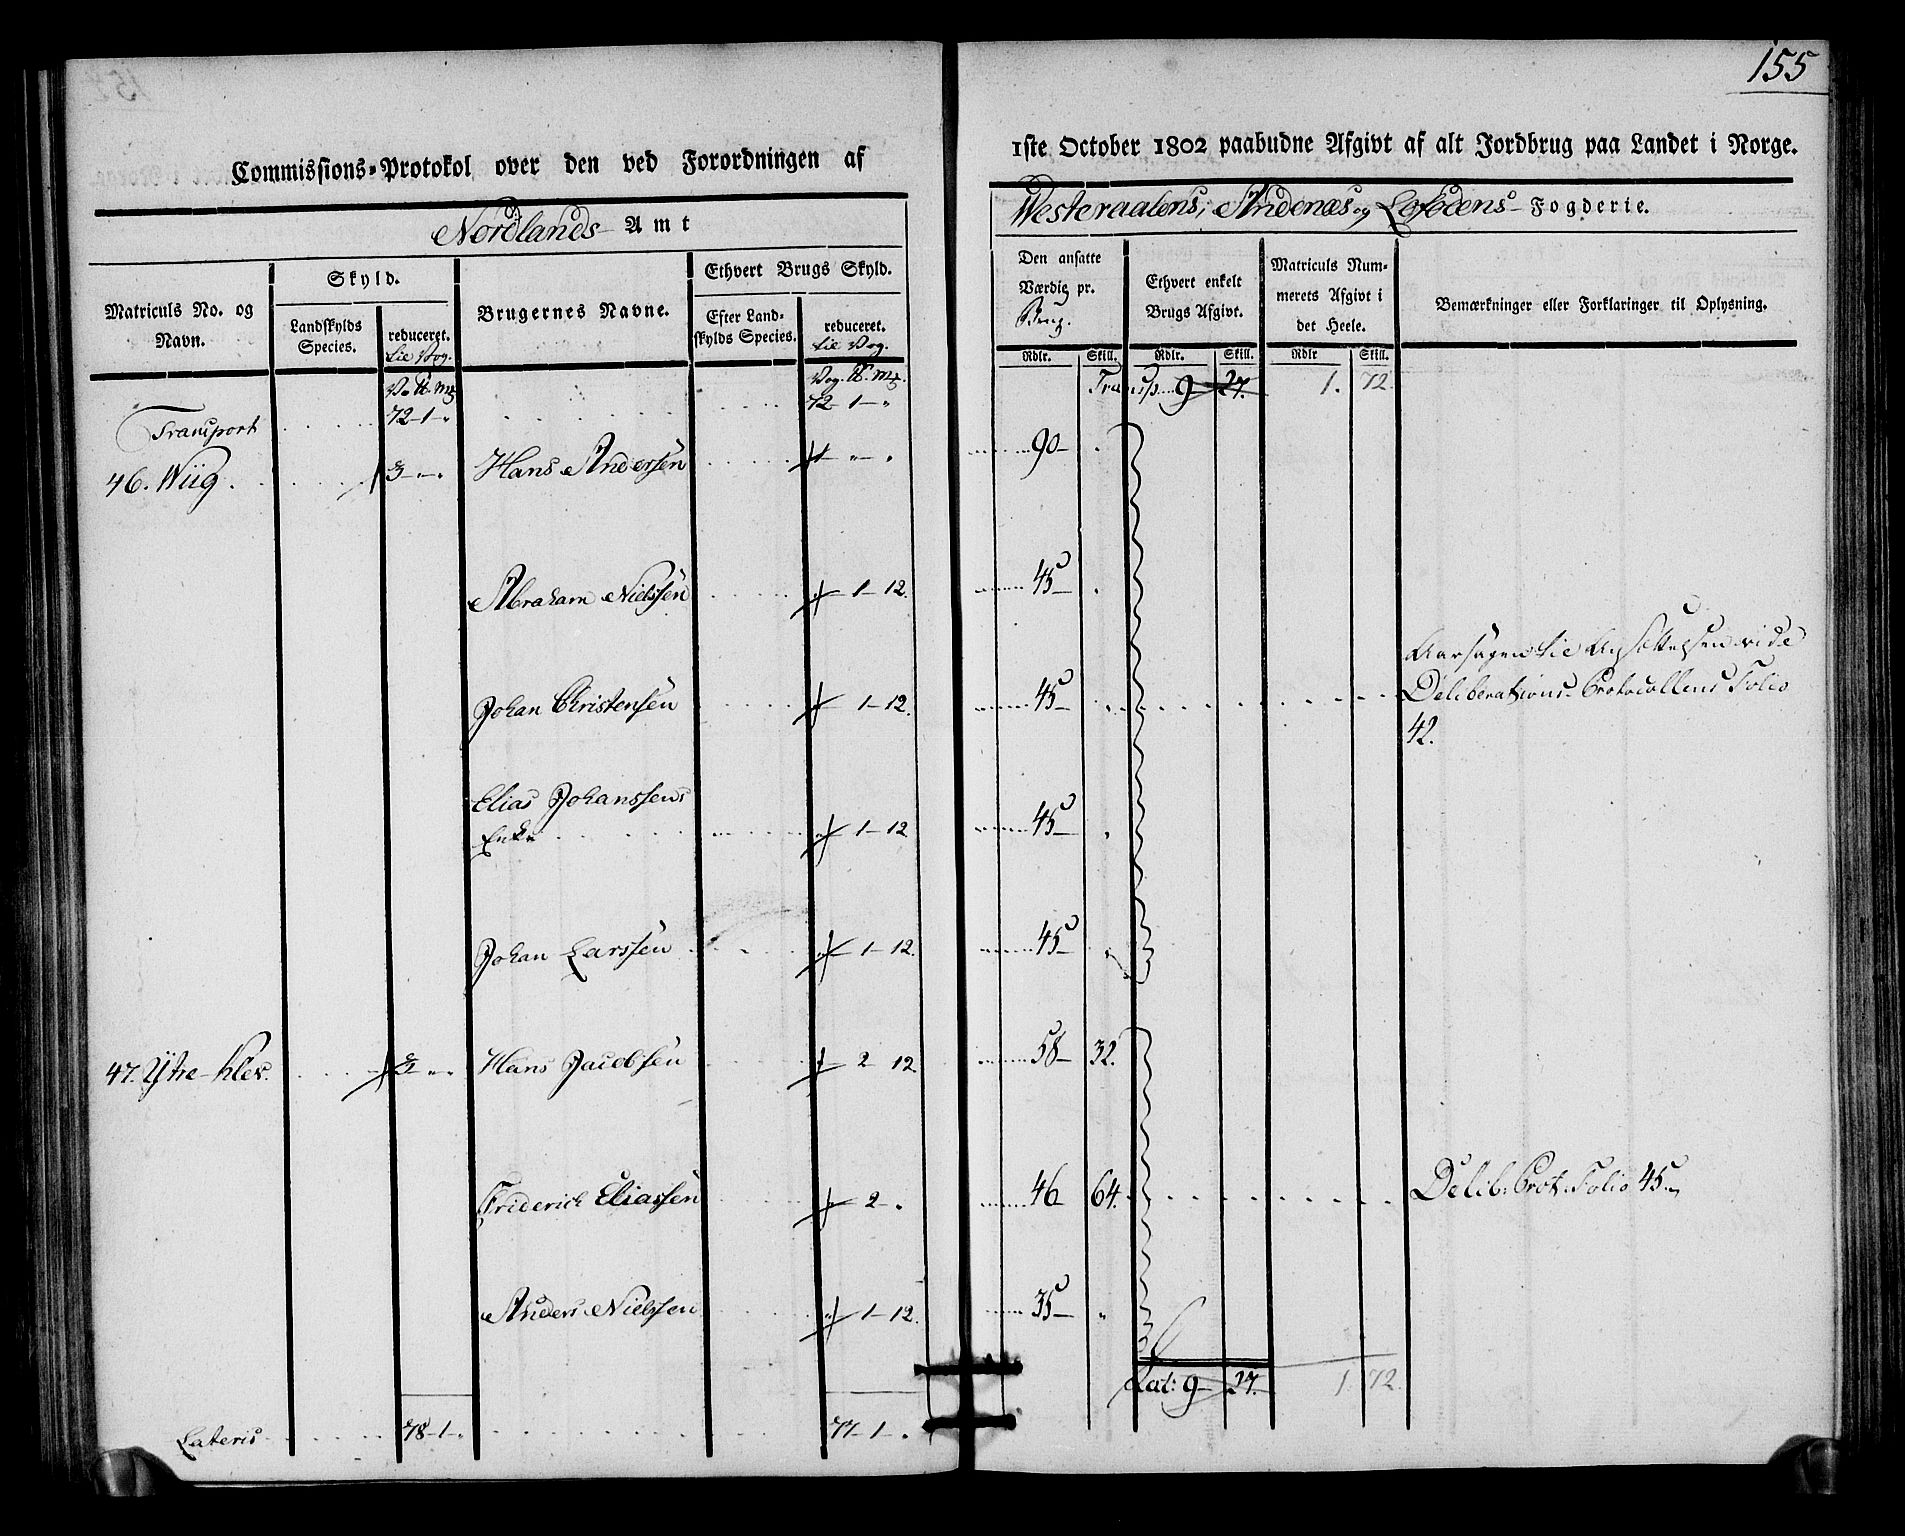 155
Commissions-Protokol over den ved Forordningen af
1ste October 1802 paabudne Afgivt af alt Jordbrug paa Landet i Norge.
Nordlands Amt
Westeraalens, Andenæs og Lofodens Fogderie.
Matriculs No. og Navn.
Skyld.
Landskylds Species.
reduceret. til Vog.
Brugernes Navne.
Ethvert Brugs Skyld.
Efter Landskylds Species.
reduceret. til Vog.
Den ansatte Værdie pr. Brug.
Ethvert enkelt Brugs Afgivt.
Matriculs Nummerets Afgivt i det Heele.
Bemærkninger eller Forklaringer til Oplysning.
Rdlr. Skill. Rdlr. Skill. Rdlr Skill.
Transport 72-1-" 72-1-" Transp. 9 27. 1. 72
46. Wiig. 3-"-" Hans Andersen 90-
Abraham Nielssen 1-12. 45-
Aarsagen til Ansættelsen vide
Johan Christensen 1-12. 45- Deliberations-Protocollens Folio
42.
Elias Johanssens
Enke 1-12 45-
Johan Larssen 1-12. 45-
47. Ytre-Klev. "-" Hans Jacobsen 2 12 58- 32.
Friderich Eliassen 2-. 46 64. Delib: Prot. Folio 45.
Anders Nielssen 1-12. 35- "
Lat: 9- 27. 1. 72.
Lateris 78-1-" 77-1-.